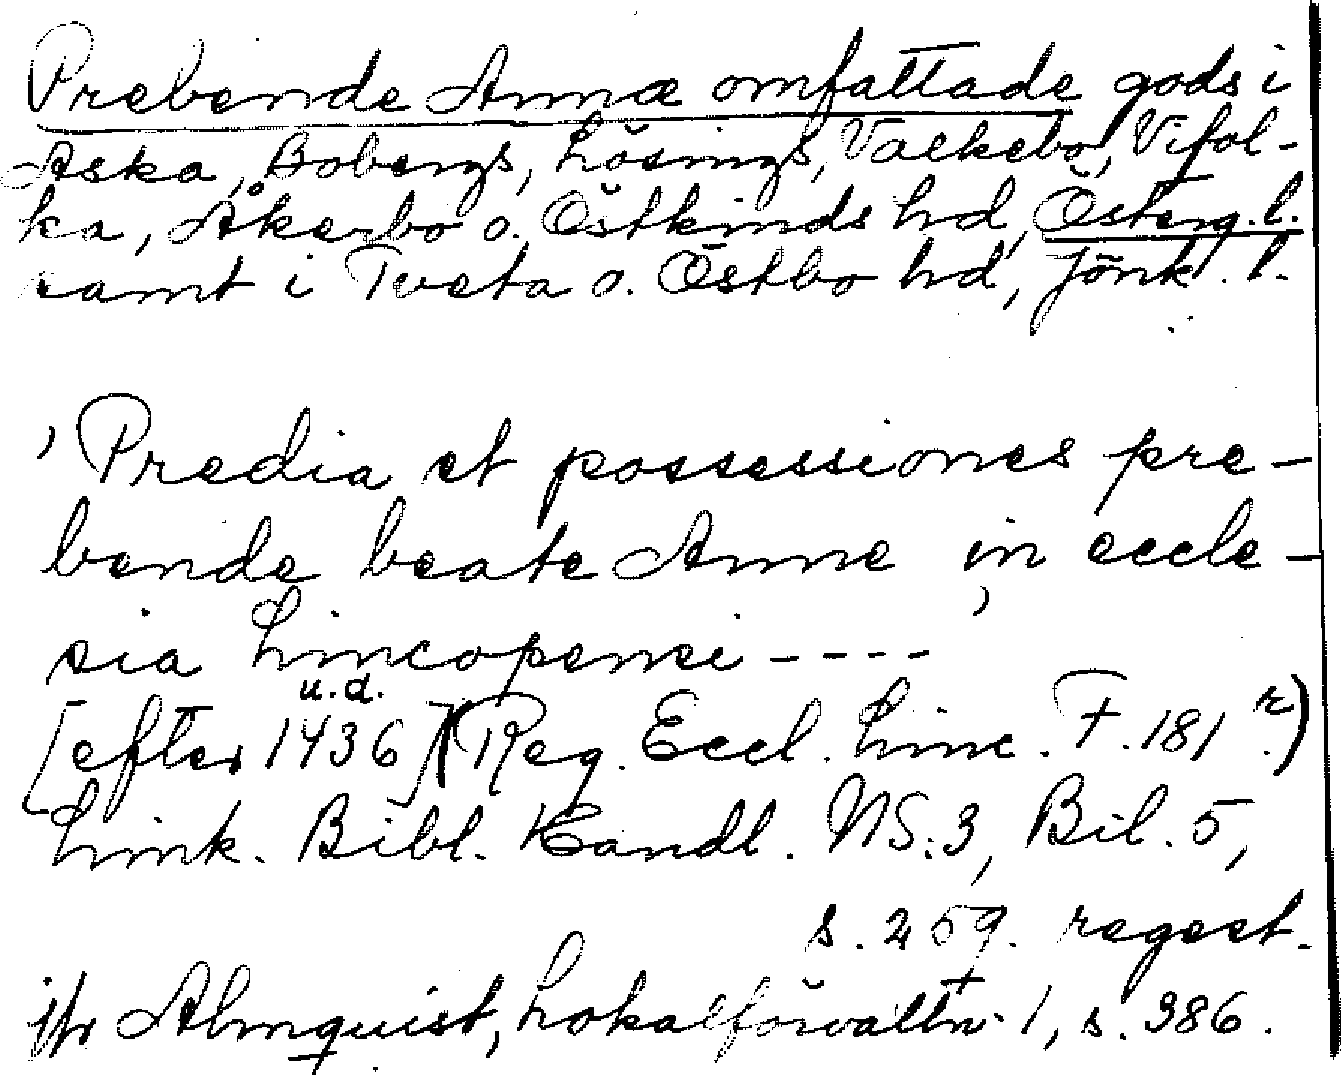 Prebende Annæ omfattade gods i
Aska, Bobergs, Lösings, Valkebo, Vifol-
ka, Åkerbo o. Östkinds hd, Österg. l.
samt i Tveta o. Östbo hd, Jönk. l.
, Predia et possessiones pre-
bende beate Anne in eccle-
sia Lincopensi ----
u.d.
[efter 1436] (Reg. Eccl. Linc. F. 181 r.)
Link. Bibl. Handl. NS:3, Bil. 5,
s. 259. regest.
jfr Almquist, Lokalförvaltn. 1, s. 386.